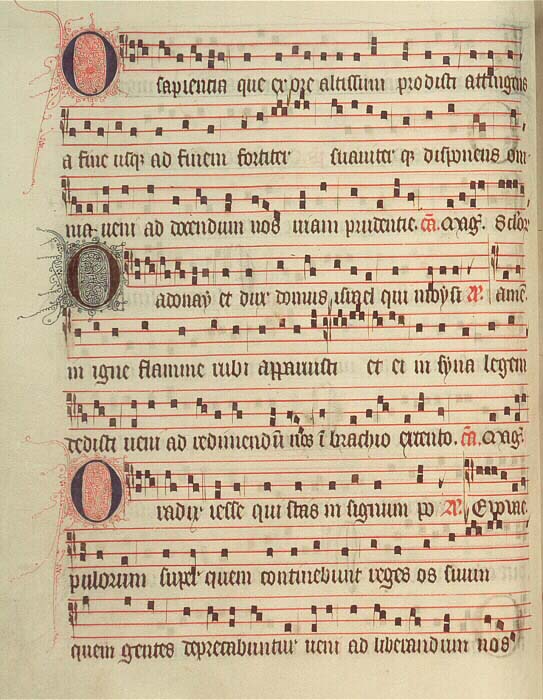 O sapientia que ex ore altissimi prodisti attingens
a fine usq; ad finem fortiter suaviter q; disponens om
nia veni ad docendum nos viam prudentie.
O adonay et dux domus israel qui moysi
in igne flamme rubi apparuisti et ei in syna legem
dedisti veni ad redimendū nos ī brachio extento.
O radix iesse qui stas in signum po
pulorum super quem continebunt reges os suum
quem gentes deprecabuntur veni ad liberandum nos